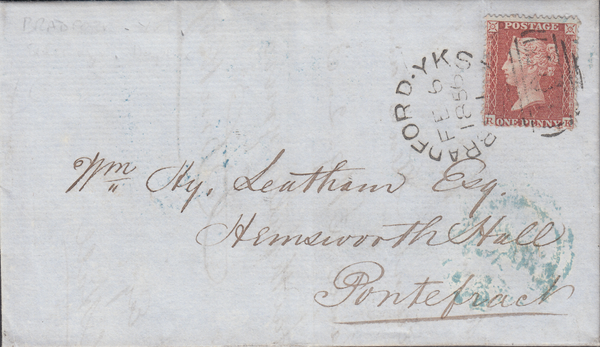 BRADFORD
POSTAGE
ONE PENNY
BRADFORD·YKS
FE 6
185
Wm Hy. Leatham Esq.
Hemsworth Hall
Pontefract